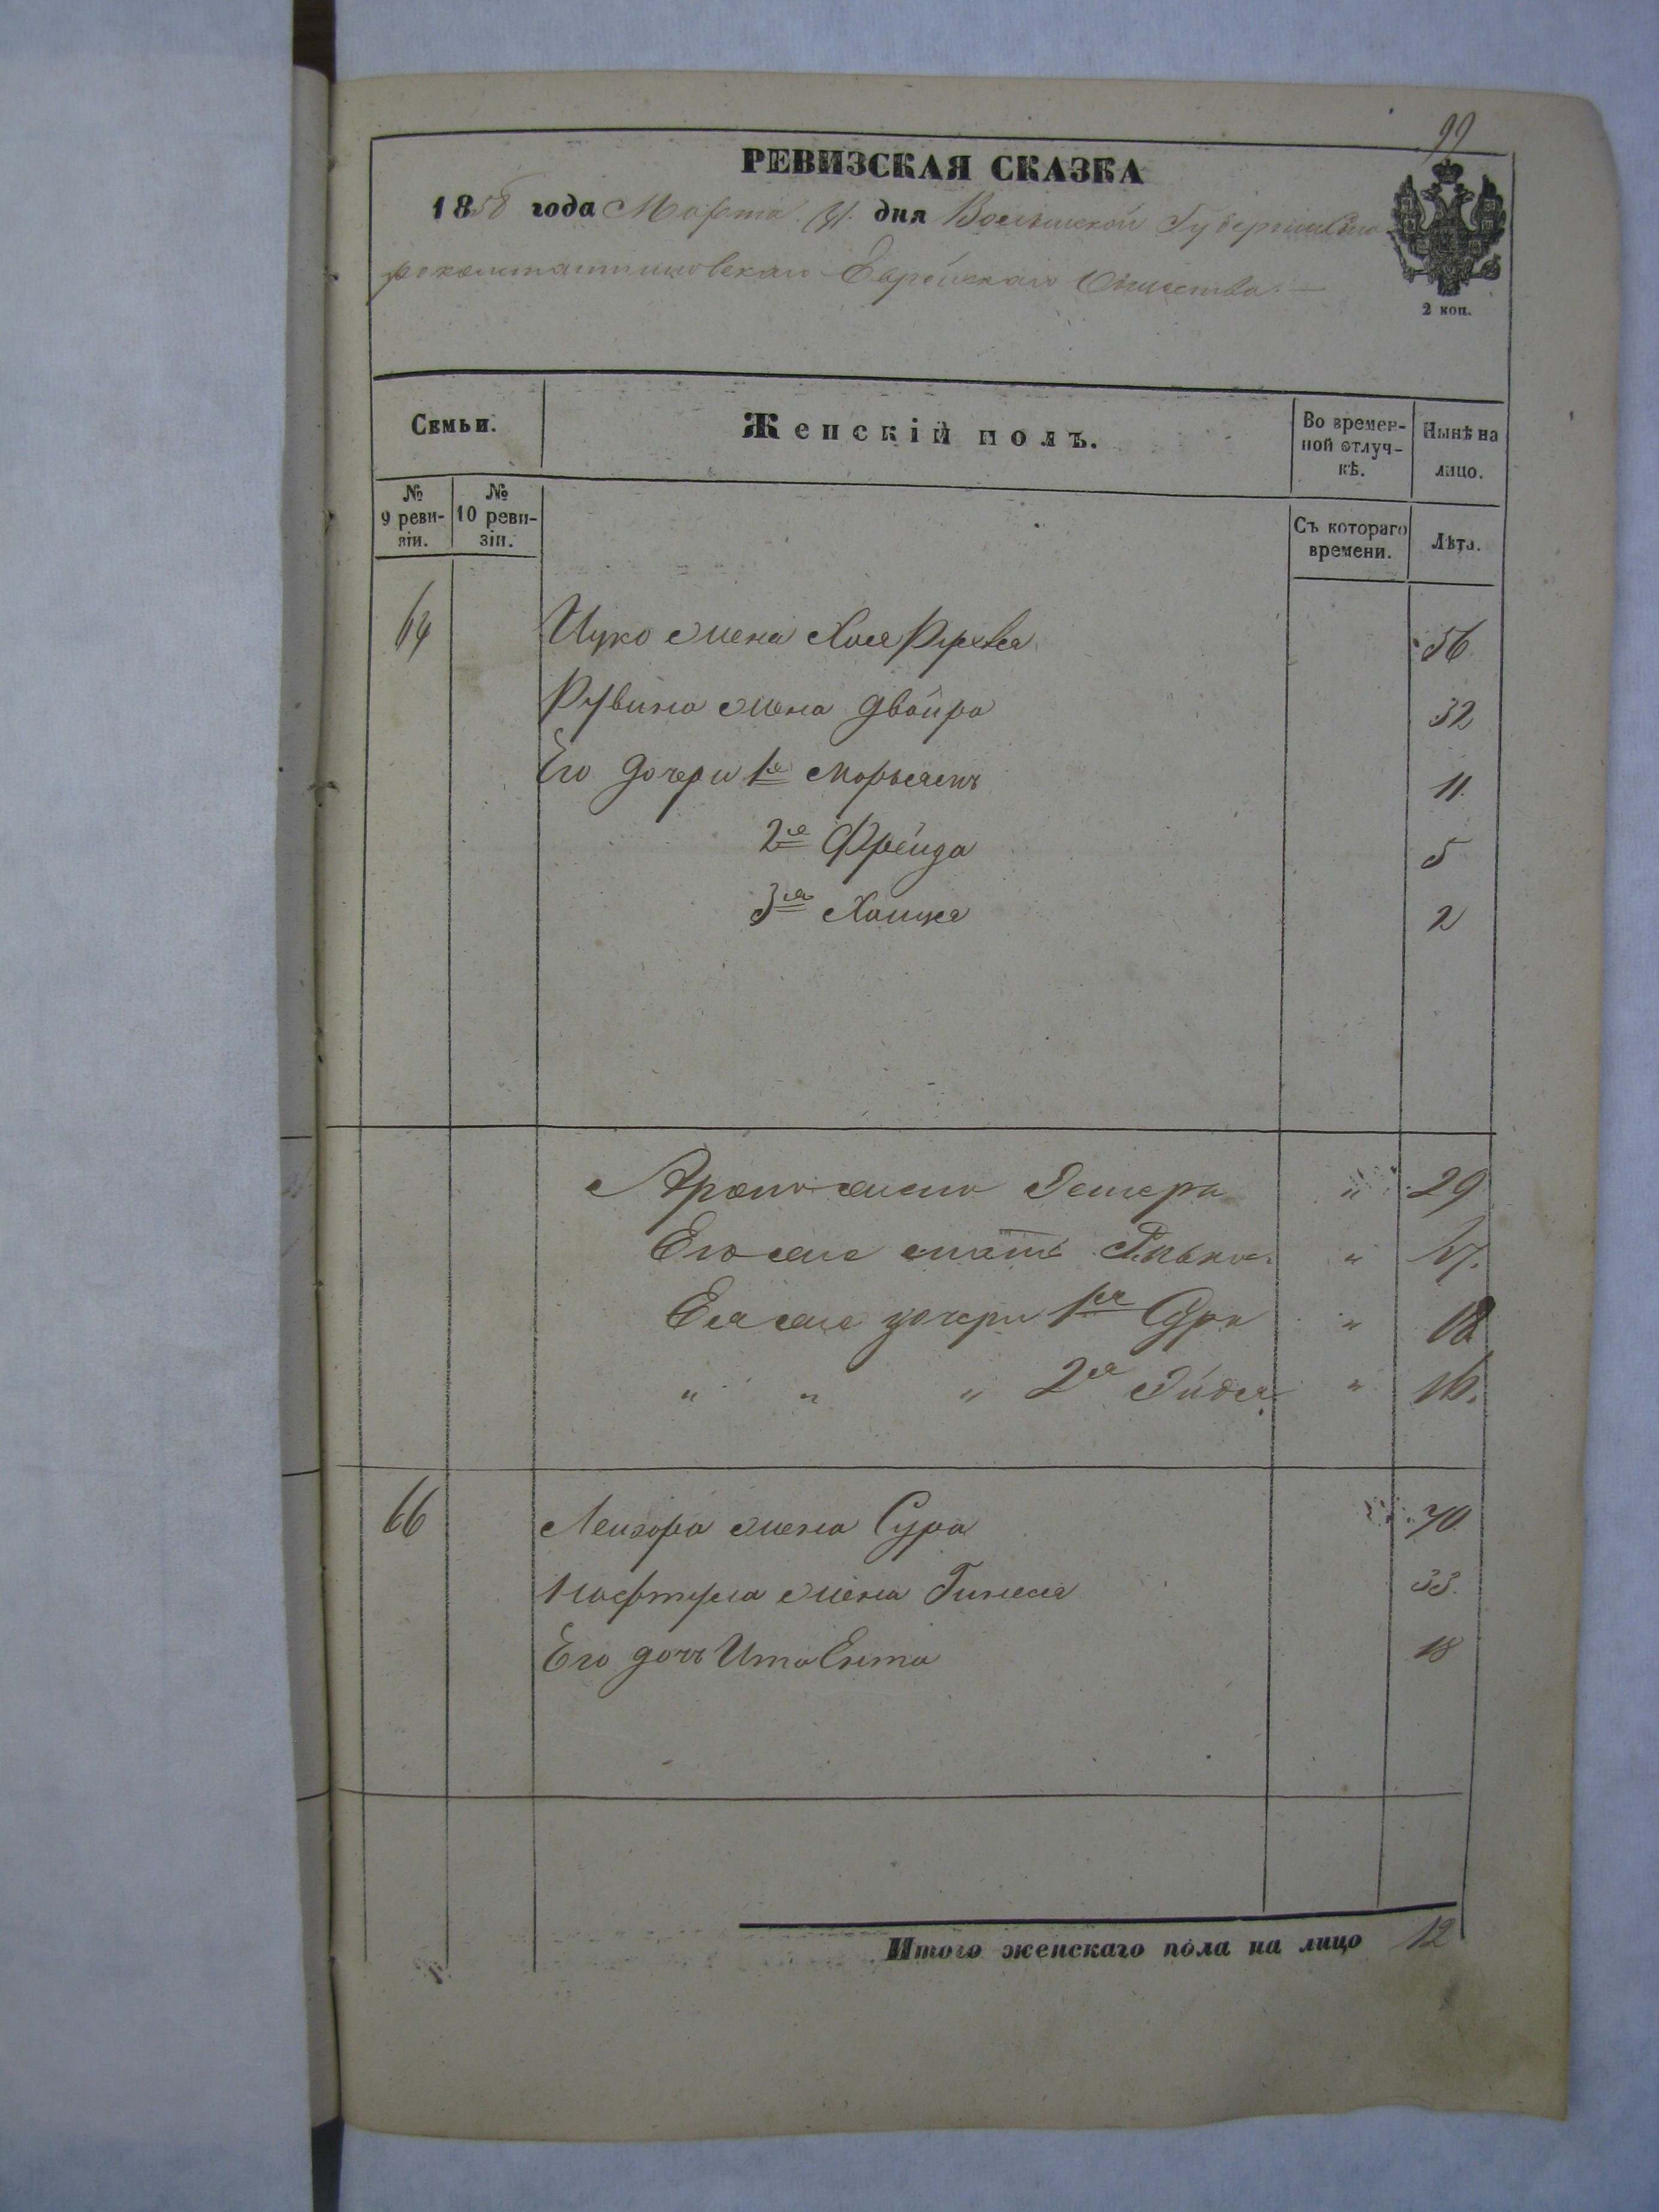 99
РЕВИЗСКАЯ СКАЗКА
1858 года Марта дня Волынской Губерніи Ста-
роконстантиновскаго Еврейскаго Общества.
2 коп.
Семьи.
Женскій полъ.
Во времен-
ной отлуч-
кѣ.
Нынѣ на
лицо.
№
9 реви-
зіи.
№
10 реви-
зіи.
Съ котораго
времени.
Лѣта.
64 Ицко жена Хая Рухля 56
Рувина жена Двойра 32
Его дочери 1я Марьямъ 11
2я Фрейда 5
3я Хашка 2
Арона жена Эстера " 29
Его же мать "
Ея же дочери 1ая Сура " 18
" " " 2я "  16.
66 Лейзора жена Сура 70
Нафтула жена Гинеся 33.
Его дочь Ита Ента 18
Итого женскаго пола на лицо 12